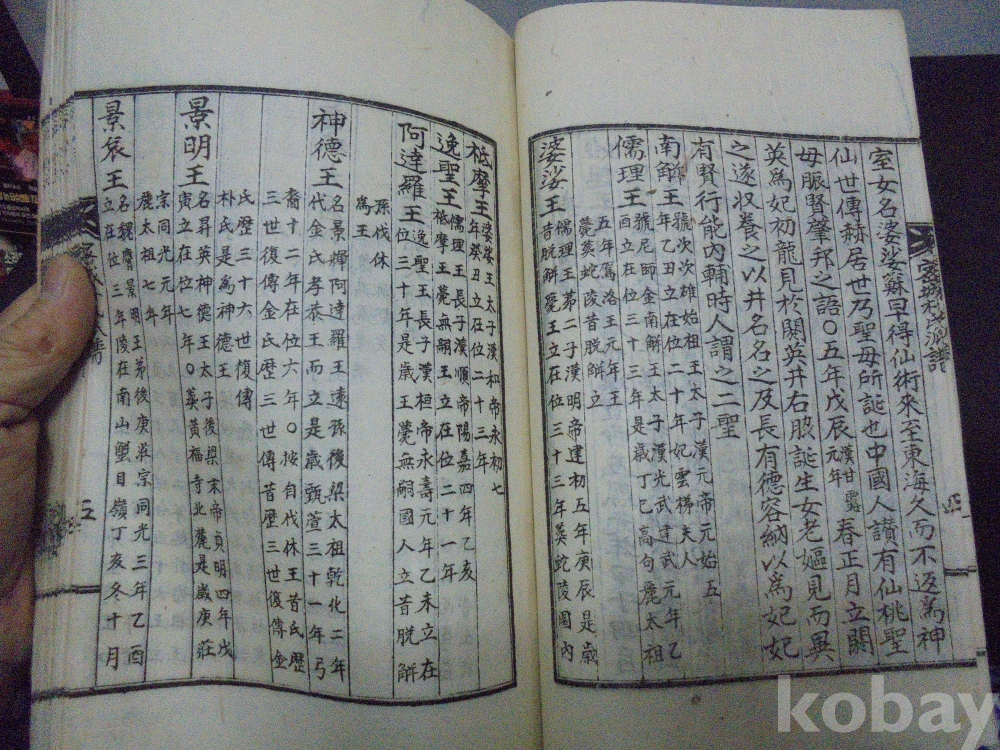 室女名婆娑蘇早得仙術來至東海久而不返爲神
仙世傳赫居世乃聖母所誕也中國人讃有仙桃聖
母賑賢肇邦之語〇五年戊辰漢甘露元年春正月立閼
英爲妃初龍見於閼英井右肢誕生女老嫗見而異
之遂收養之以井名名之及長有德容納以爲妃妃
有賢行能內輔時人謂之二聖
南解王號次次雄始祖王太子漢元帝元始五
年乙丑立在位二十年妃雲梯夫人
儒理王號尼師金南解王太子漢光武建武元年乙
酉立在位三十三年是歲丁巳高句麗太祖
五年駕洛王元年王
薨葬蛇陵昔脫解立
婆娑王儒理王第二子漢明帝建初五年庚辰是歲
昔脫解薨王立在位三十三年葬蛇陵園內
祗摩王婆娑王太子漢和帝永初七
年癸丑立在位二十三年
逸聖王儒理王長子漢順帝陽嘉四年乙亥
祗摩王薨無嗣王立在位二十一年
阿達羅王逸聖王長子漢桓帝永壽元年乙未立在
位三十年是歲王薨無嗣國人立昔脫解
孫伐休
爲王
神德王名景輝阿達羅王遠孫後梁太祖乾化二年
代金氏孝恭王而立是歲甄萱三十一年弓
裔十二年在位六年〇按自伐休王昔氏歷
三世復傳金氏歷三世傳昔歷三世復傳金
氏歷三十六世復傳
朴氏是爲神德王
景明王名昇英神德王太子後梁末帝貞明四年戊
寅立在位七年〇葬黃福寺北麓是歲庚莊
宗同光元年
麗太祖七年
景哀王名魏膺景明王弟後庚莊宗同光三年乙酉
立在位三年陵在南山蟹目嶺丁亥冬十月
kobay